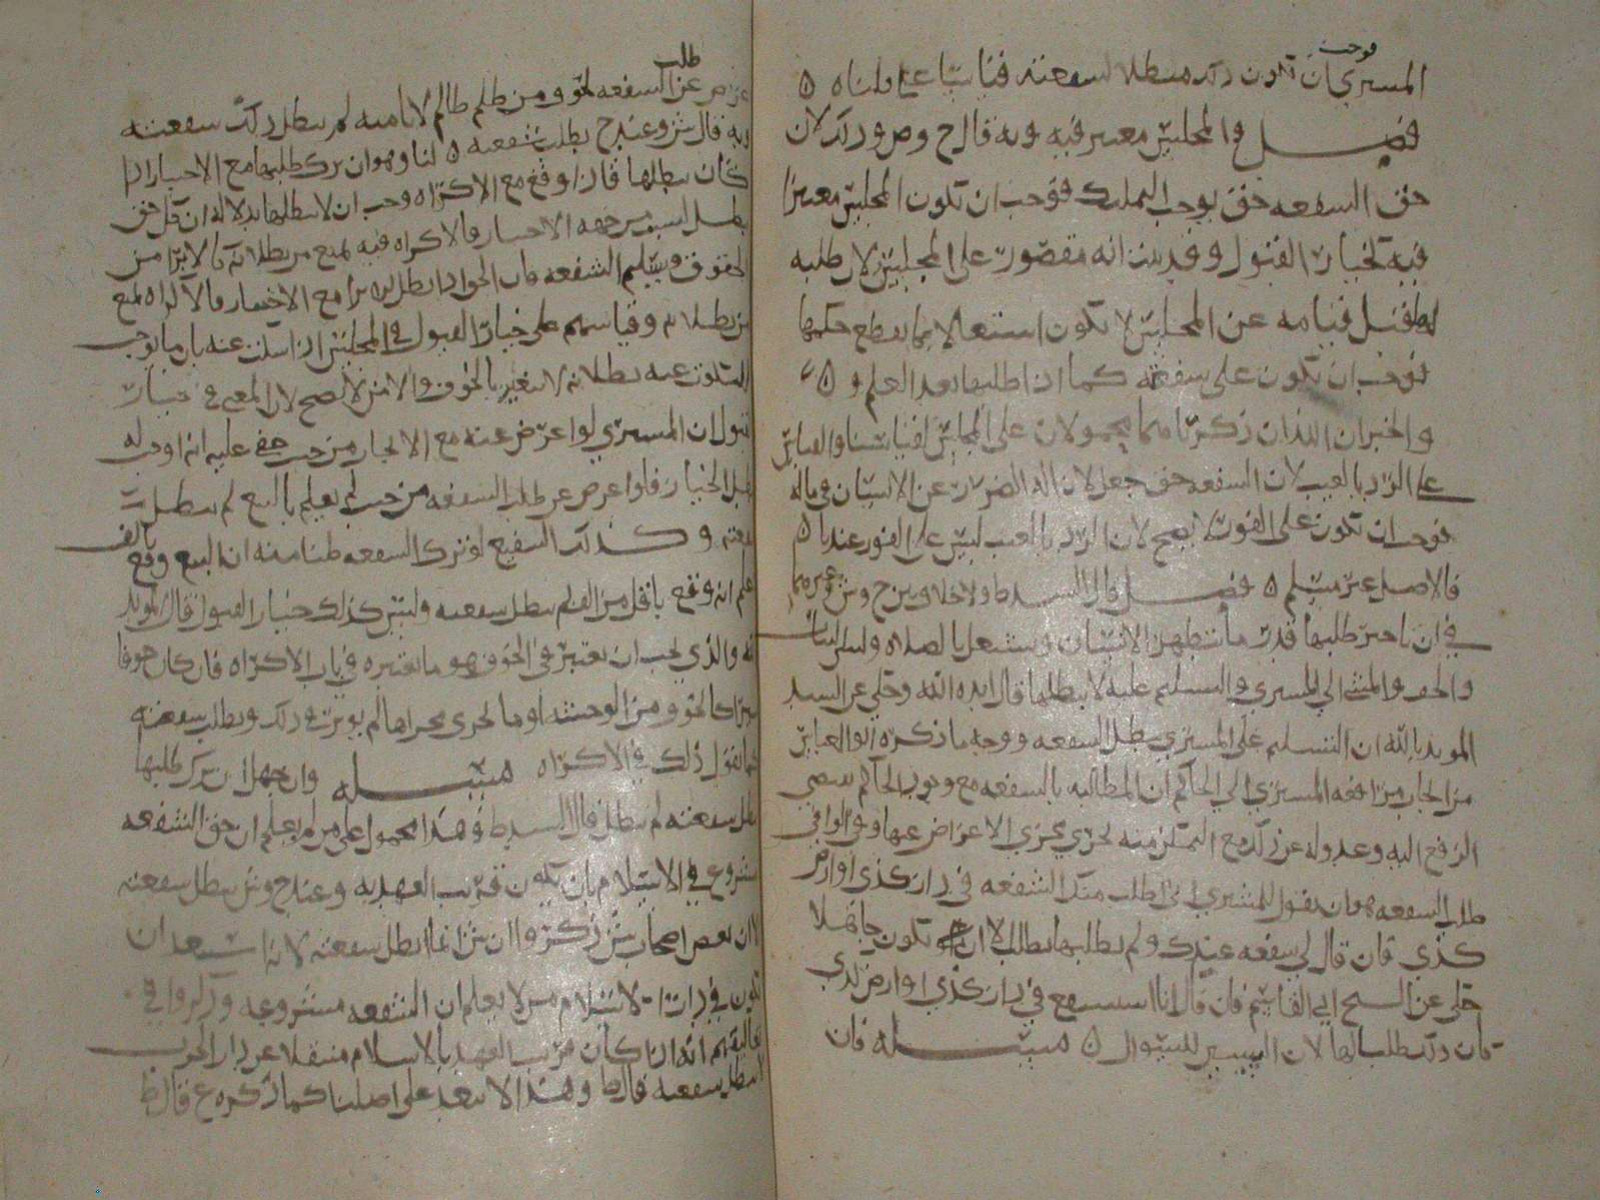 المشتري فوجب ان تكون ذلك مبطلا لشفعته قياسا على ما قلناه ٥
فصل والمجلس معتبر فيه وبه قال ح وص وذلك لان
حق الشفعه حق يوجب التملك فوجب ان تكون المجلس معتبرا
فيه كخيار القبول وقد ثبت انه مقصور على المجلس لان طلبه
قبل قيامه عن المجلس لا تكون اشتغالا بما يقطع حكمها
فوجب ان تكون على شفعته كما اذا طلبها بعد العلم ٥
والخبران اللذان ذكرناهما محمولان على المجلس لقياسنا والقياس
على الرد بالعيب لان الشفعه حق جعل لازالة الضرر عن الانسان في ماله
فوجب ان تكون على الفور لا يصح لان الرد بالعيب ليس على الفور عندنا ٥
فالاصل غير مسلم ٥ فصل قال السيد ط ولا خلاف بين ح وش وغيرهما
في ان تاخير طلبها قدر ما يتطهر الانسان ويشتغل بالصلاه ولبس الثياب
والخف والمشي الى المشتري والتسليم عليه لا يبطلها قال ايده الله وحكي عن السيد
المويد بالله ان التسليم على المشتري يبطل الشفعه ووجه ما ذكره ابو العباس
من الجار مرافعه المشتري الى الحاكم ان المطالبه بالشفعه مع وجود الحاكم يقتضي
الرفع اليه وعدوله عن ذلك مع التمكن منه يجري مجرى الاعراض عنها وفي الوافي
طلب الشفعه هو ان يقول للمشتري انا طلب منك الشفعه في دار كذى او ارض
كذى فان قال لي شفعه عندك ولم يطلبها بطلت الا ان تكون جاهلا
حكي عن الشيخ ابي القاسم فان قال انا استشفع في دار كذى او ارض كذى
كان ذلك طلبا لها لان السين للسوال ٥ مسئله فان
عرض عن طلب الشفعه لخوف من ظلم ظالم لا يامنه لم تبطل ذلك شفعته
وبه قال ش وعند ح بطلت شفعته ٥ لنا وهو ان ترك طلبها مع الاختيار اذا
كان يبطلها فاذا وقع مع الاكراه وجب ان لا يبطلها بدلالة ان كل حق
يبطل لسبب من جهه الاختيار فالاكراه فيه يمنع من بطلانه كالابرا من
الحقوق وتسليم الشفعه فان الحق اذا بطل بالابرا مع الاختيار فالاكراه يمنع
من بطلانه وقياسهم على خيار القبول في المجلس اذا سكت عنه بان ما يوجب
السكوت عنه بطلانه لا يتغير بالخوف والامن لا يصح لان المعنى في خيار
القبول ان المشتري لو اعرض عنه مع الايجاب من حيث خفي عليه انه اوجب له
بطل الخيار فلو اعرض عن طلب الشفعه من حيث لم يعلم بالبيع لم تبطل
شفعته وكذلك الشفيع لو ترك الشفعه ظنا منه ان البيع وقع بالف
علم انه وقع باقل من الف لم تبطل شفعته وليس كذلك خيار القبول قال المويد
بالله والذي يجب ان يعتبر في الخوف هو ما نعتبره في باب الاكراه فان كان خوفا
يسيرا كالخوف من الوحشه او ما يجري مجراها لم يوثر في ذلك وبطلت شفعته
كما نقول ذلك في الاكراه مسئله وان جهل ان ترك طلبها
يبطل شفعته لم تبطل قال السيد ط وهذا محمول على من لم يعلم ان حق الشفعه
مشروع في الاسلام بان تكون قريب العهد به وعند ح وش تبطل شفعته
الا ان بعض اصحاب ش ذكروا ان ش انما ابطل شفعته لانه استبعد ان
تكون في دار الاسلام من لا يعلم ان الشفعه مشروعه وذكروا في
كان قريب العهد بالاسلام منتقلا عن دار الحرب
لا تبطل شفعته قال ط وهذا لا يبعد على اصلنا كما ذكره ع قال ط